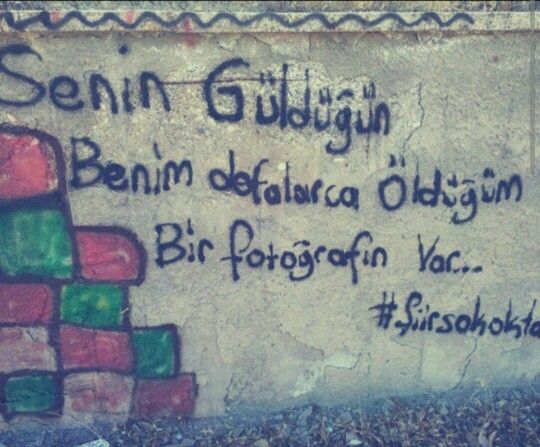 Senin Güldüğün
Benim defalarca Öldüğüm
Bir fotoğrafın Var...
#şiirsokokta